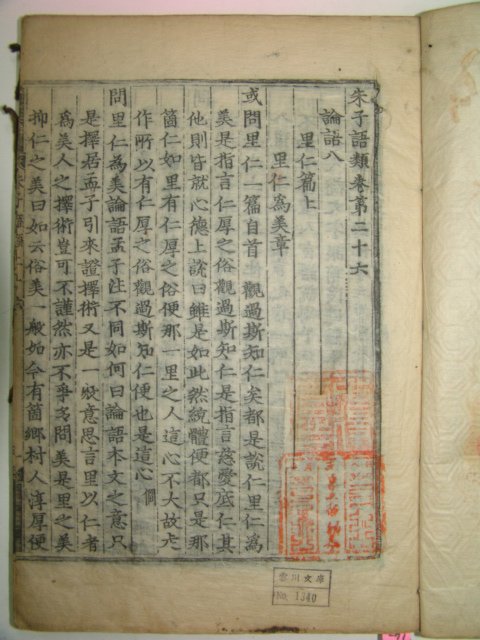 朱子語類卷第二十六
論語八
里仁篇上
里仁為美章
或問里仁一篇自首至觀過斯知仁矣都是說仁里仁為
美是指言仁厚之俗觀過斯知仁是指言慈愛底仁其
他則皆就心德上說曰雖是如此然統體便都只是那
箇仁如里有仁厚之俗便那一里之人這心不大故走
作所以有仁厚之俗觀過斯知仁便也是這心 僩
問里仁為美論語孟子注不同如何曰論語本文之意只
是擇居孟子引來證擇術又是一般意思言里以仁者
為美人之擇術豈可不謹然亦不爭多問美是里之美
抑仁之美曰如云俗美一般如今有箇鄉村人淳厚便
雲川文庫
No. 1340